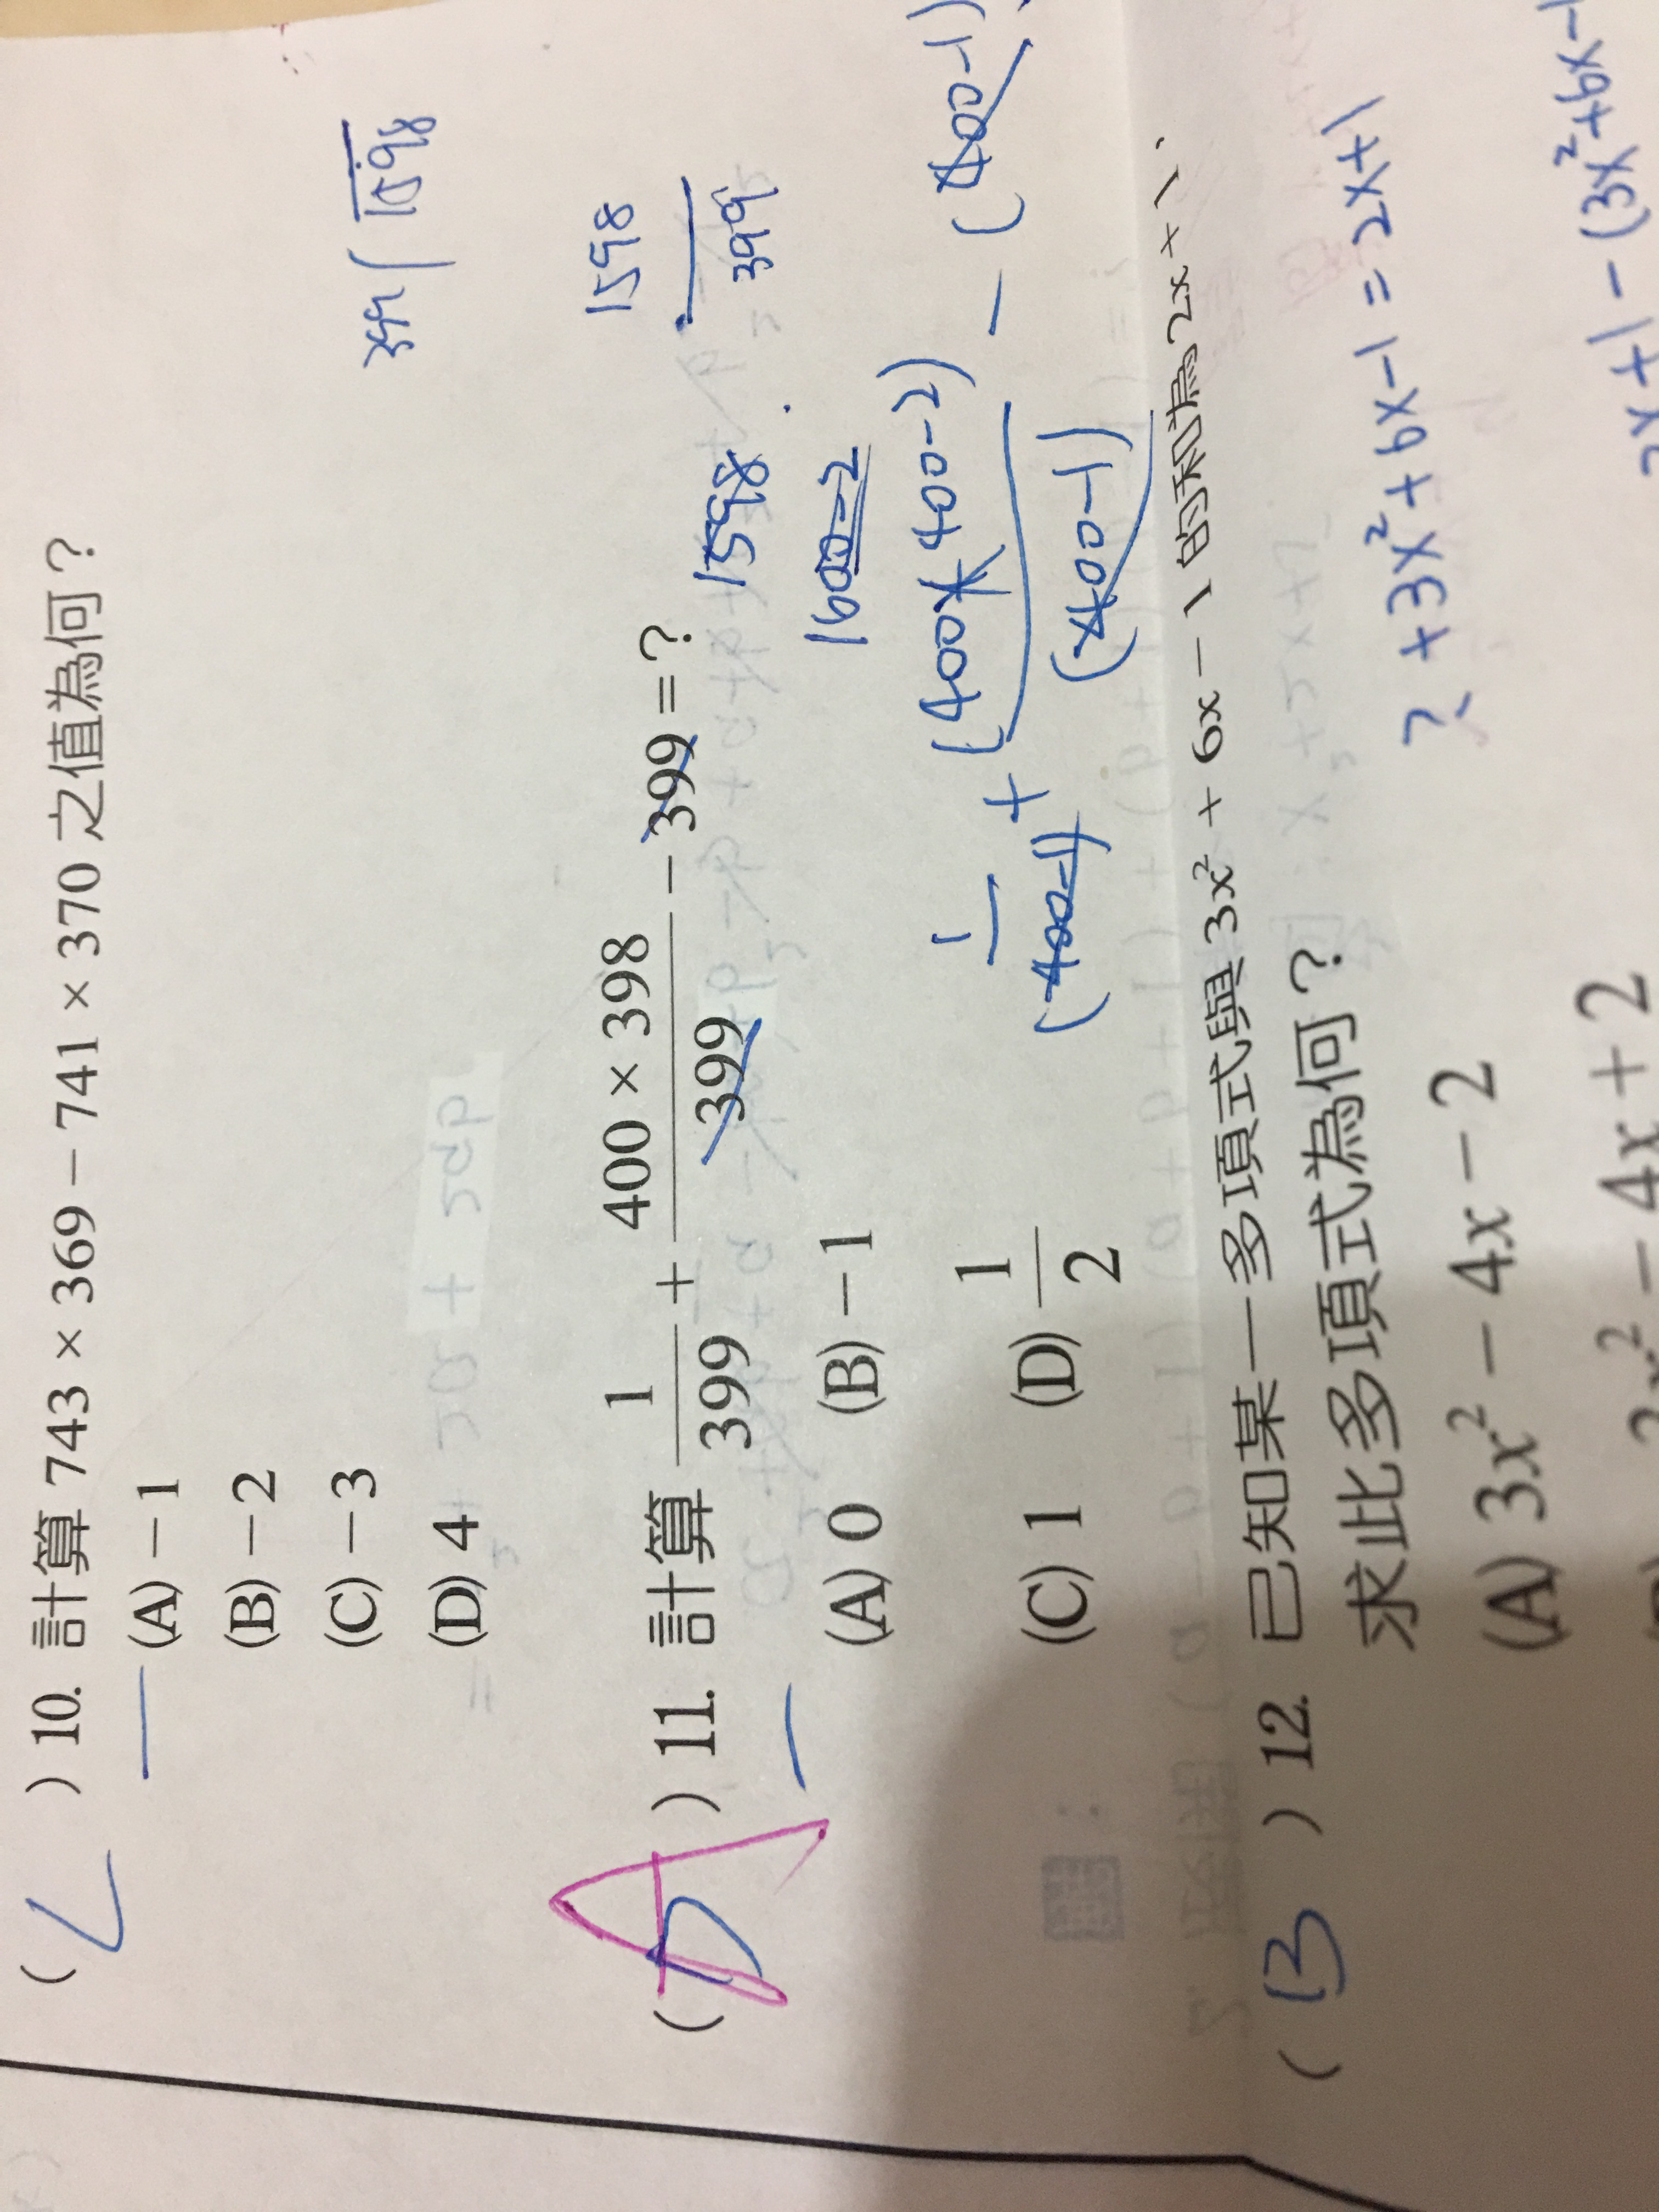 ( C ) 10. 計算 743 × 369 − 741 × 370 之值為何？
(A) −1
(B) −2
(C) −3
(D) 4
399 1598
( A ) 11. 計算 1/399 + 400 × 398/399 − 399 = ？
1598
399
1598
1600-2
(A) 0 (B) −1
1/(400-1) + (400×400-2)/(400-1) - (400-1)
(C) 1 (D) 1/2
( B ) 12. 已知某一多項式與 3x² + 6x − 1 的和為 2x + 1，
求此多項式為何？
? + 3x² + 6x - 1 = 2x + 1
(A) 3x² − 4x − 2
2x + 1 - (3x² + 6x - 1
3x² − 4x + 2